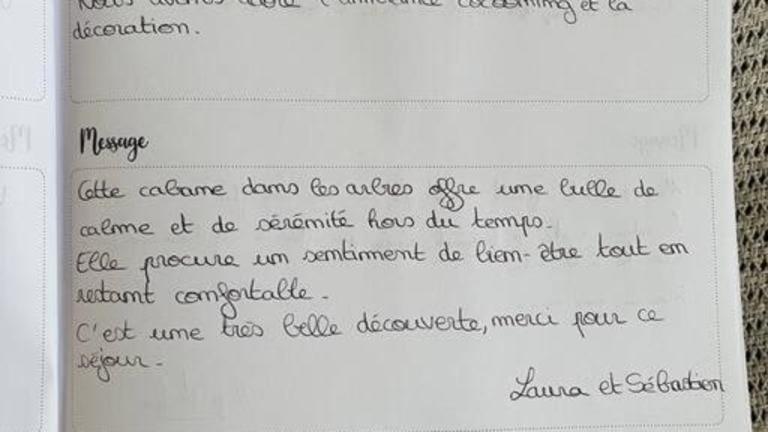 Nous avons adoré l'ambiance cocooning et la
décoration.
Message
Cette cabane dans les arbres offre une bulle de
calme et de sérénité hors du temps.
Elle procure un sentiment de bien-être tout en
restant comfortable.
C'est une très belle découverte, merci pour ce
séjour.
Laura et Sébastien